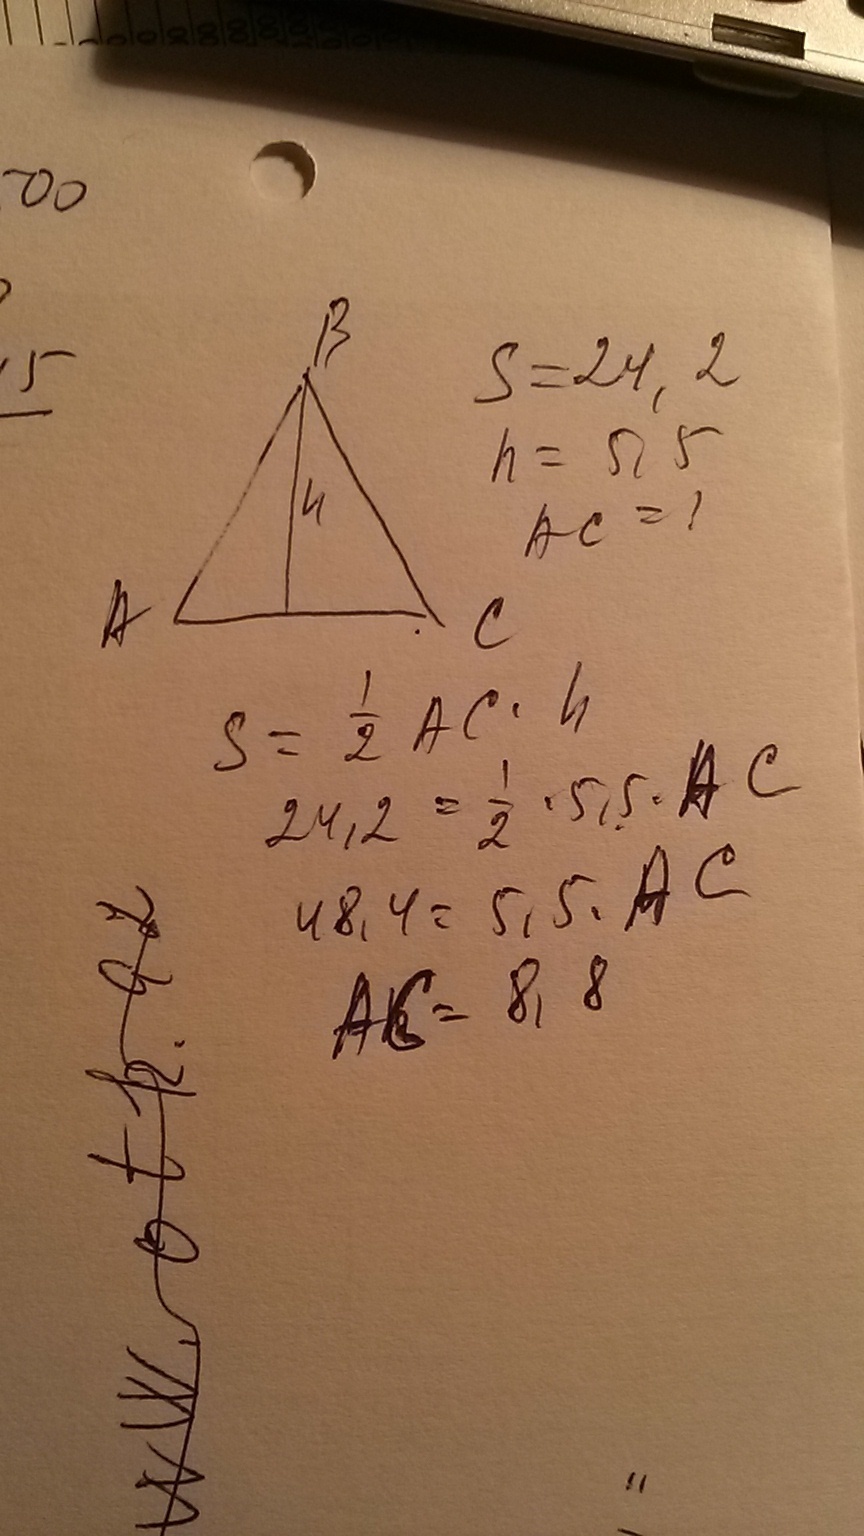 00
15
B
S = 24,2
h = 5,5
h
AC = ?
A
C
S = 1/2 AC · h
24,2 = 1/2 · 5,5 · AC
48,4 = 5,5 · AC
AC = 8,8